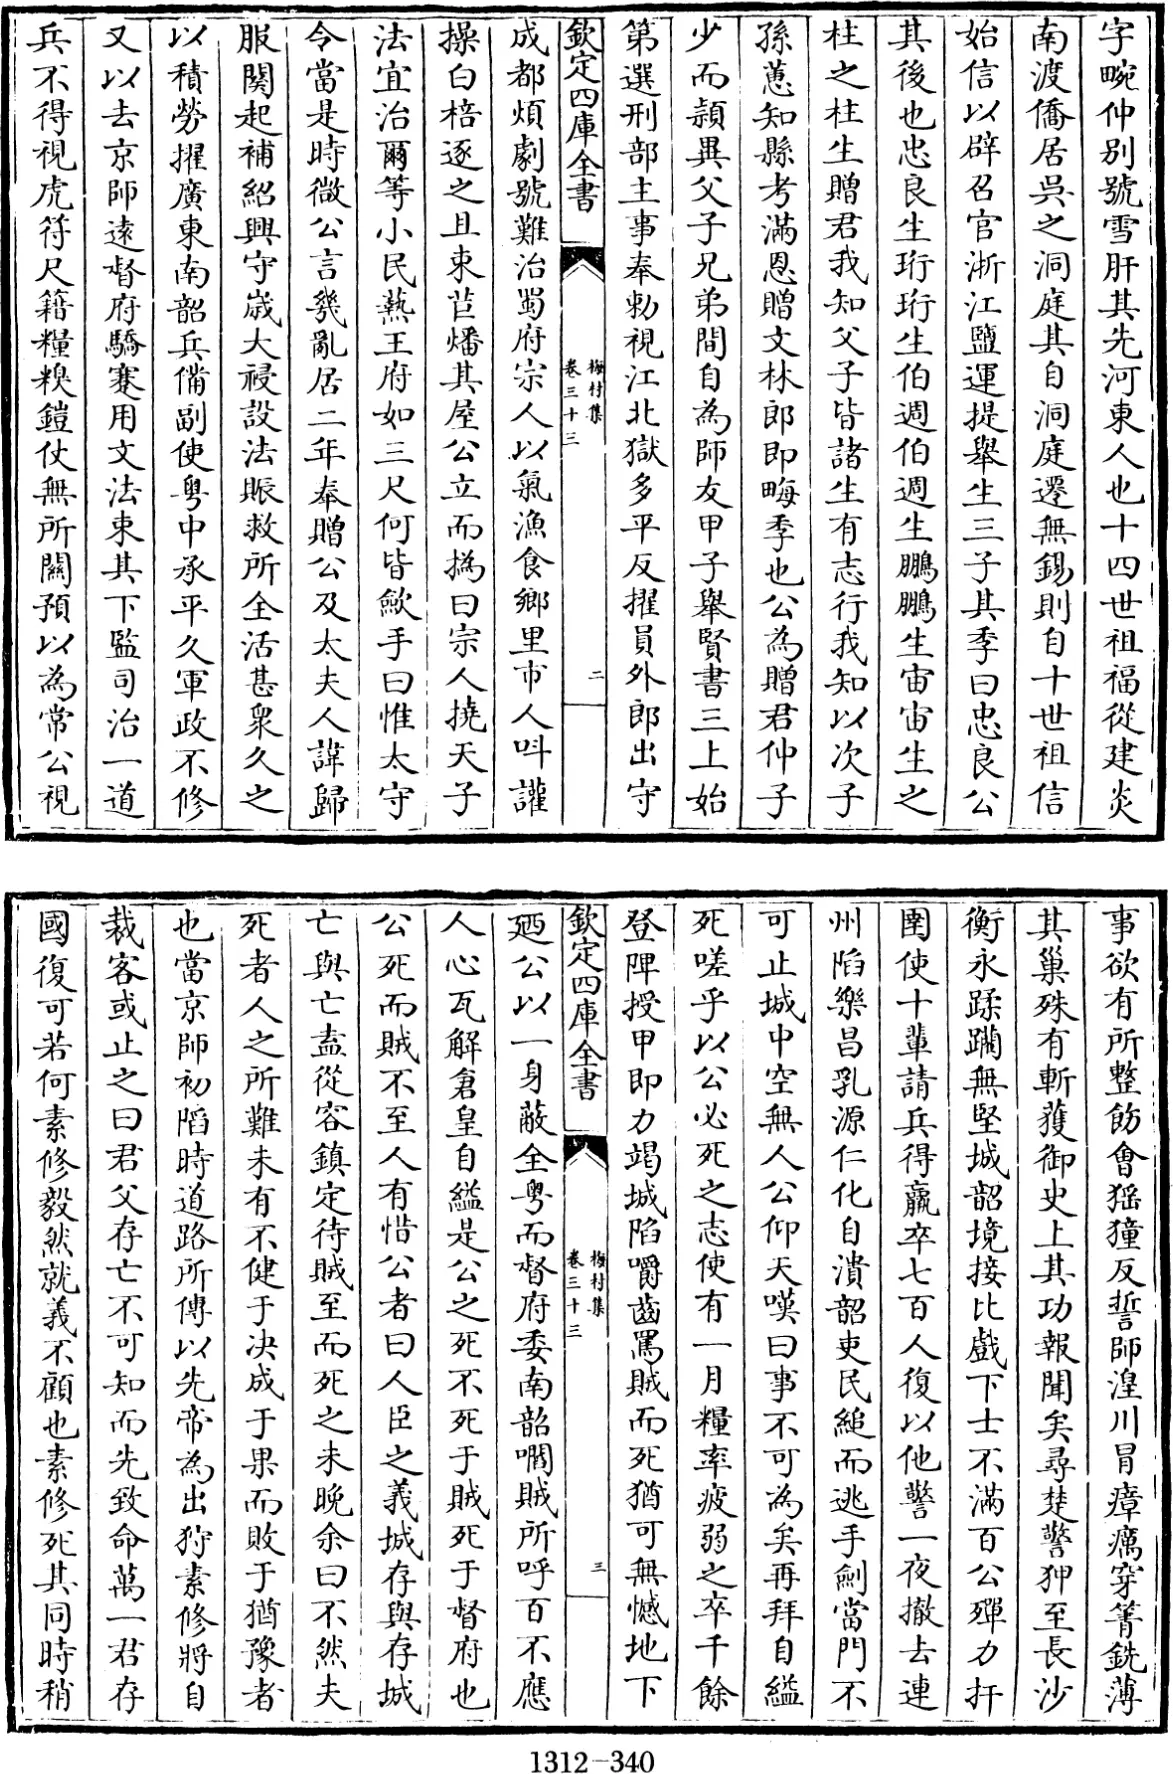 字畹仲别號雪肝其先河東人也十四世祖福從建炎
南渡僑居吳之洞庭其自洞庭遷無錫則自十世祖信
始信以辟召官浙江鹽運提舉生三子其季曰忠良公
其後也忠良生珩珩生伯週伯週生鵬鵬生宙宙生之
柱之柱生贈君我知父子皆諸生有志行我知以次子
孫蕙知縣考滿恩贈文林郎即畮季也公為贈君仲子
少而頴異父子兄弟間自為師友甲子舉賢書三上始
第選刑部主事奉勅視江北獄多平反擢員外郎出守
欽定四庫全書
梅村集
卷三十三
二
成都煩劇號難治蜀府宗人以氣漁食鄉里市人呌讙
操白棓逐之且束苣燔其屋公立而撝曰宗人撓天子
法宜治爾等小民爇王府如三尺何皆歛手曰惟太守
令當是時微公言幾亂居二年奉贈公及太夫人諱歸
服闋起補紹興守歲大祲設法賑救所全活甚衆久之
以積勞擢廣東南韶兵備副使粤中承平久軍政不修
又以去京師逺督府驕蹇用文法束其下監司治一道
兵不得視虎符尺籍糧糗鎧仗無所闗預以為常公視
事欲有所整飭會猺獞反誓師湟川冒瘴癘穿箐銑薄
其巢殊有斬獲御史上其功報聞矣尋楚警狎至長沙
衡永蹂躪無堅城韶境接比戲下士不滿百公殫力扞
圉使十輩請兵得羸卒七百人復以他警一夜撤去連
州陷樂昌乳源仁化自潰韶吏民縋而逃手劍當門不
可止城中空無人公仰天嘆曰事不可為矣再拜自縊
死嗟乎以公必死之志使有一月糧率疲弱之卒千餘
登陴授甲即力竭城陷嚼齒罵賊而死猶可無憾地下
欽定四庫全書
梅村集
卷三十三
三
廼公以一身蔽全粤而督府委南韶㗸賊所呼百不應
人心瓦解倉皇自縊是公之死不死于賊死于督府也
公死而賊不至人有惜公者曰人臣之義城存與存城
亡與亡盍從容鎮定待賊至而死之未晚余曰不然夫
死者人之所難未有不健于决成于果而敗于猶豫者
也當京師初陷時道路所傳以先帝為出狩素修將自
裁客或止之曰君父存亡不可知而先致命萬一君存
國復可若何素修毅然就義不顧也素修死其同時稍
1312-340